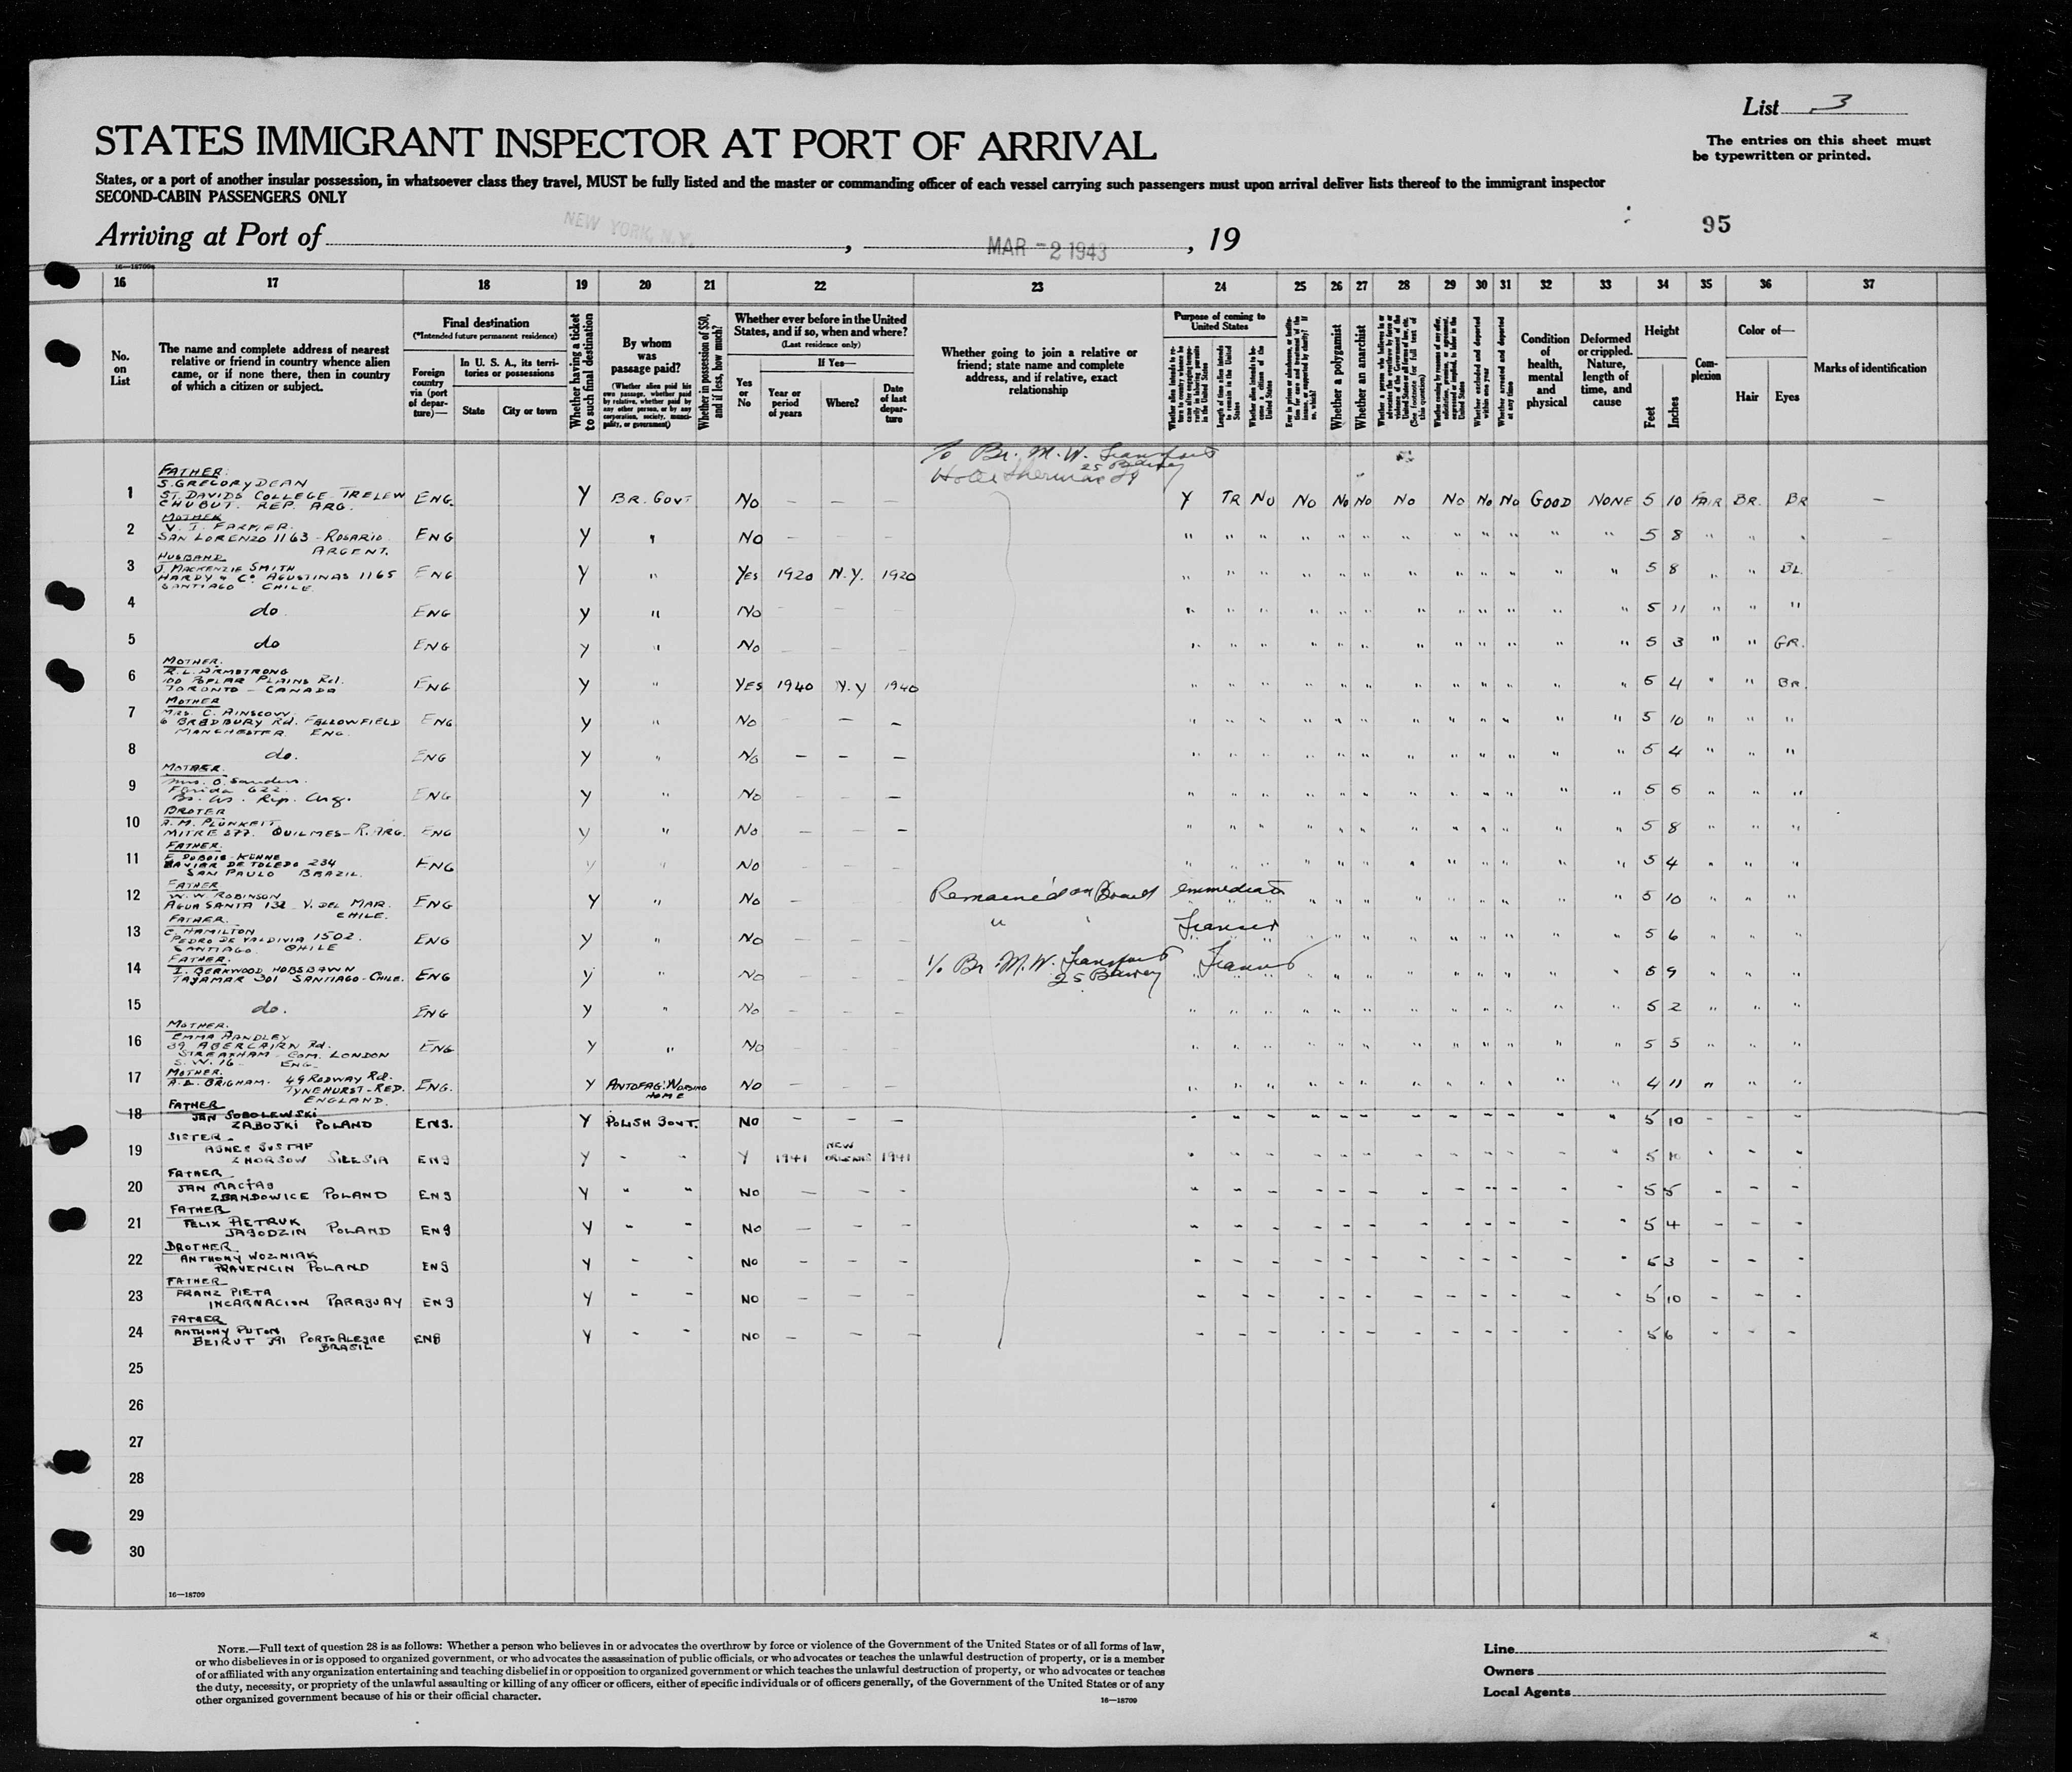 List 3
The entries on this sheet must
be typewritten or printed.
STATES IMMIGRANT INSPECTOR AT PORT OF ARRIVAL
States, or a port of another insular possession, in whatsoever class they travel, MUST be fully listed and the master or commanding officer of each vessel carrying such passengers must upon arrival deliver lists thereof to the immigrant inspector
SECOND-CABIN PASSENGERS ONLY
95
Arriving at Port of NEW YORK, N.Y. , MAR -2 1943 , 19
16—18709
16 17 18 19 20 21 22 23 24 25 26 27 28 29 30 31 32 33 34 35 36 37
No.
on
List
The name and complete address of nearest
relative or friend in country whence alien
came, or if none there, then in country
of which a citizen or subject.
Final destination
(*Intended future permanent residence)
Foreign
country
via (port
of depar-
ture)—
In U. S. A., its terri-
tories or possessions
State City or town
Whether having a ticket
to such final destination
By whom
was
passage paid?
(Whether alien paid his
own passage, whether paid
by relative, whether paid by
any other person, or by any
corporation, society, munici-
pality, or government)
Whether in possession of $50,
and if less, how much?
Whether ever before in the United
States, and if so, when and where?
(Last residence only)
Yes
or
No
If Yes—
Year or
period
of years
Where?
Date
of last
depar-
ture
Whether going to join a relative or
friend; state name and complete
address, and if relative, exact
relationship
Purpose of coming to
United States
Length of time alien intends
to remain in the United
States
Whether alien intends to be-
come a citizen of the
United States
Whether a polygamist
Whether an anarchist
Whether excluded and deported
within one year
Whether arrested and deported
at any time
Condition
of
health,
mental
and
physical
Deformed
or crippled.
Nature,
length of
time, and
cause
Height
Feet
Inches
Com-
plexion
Color of—
Hair Eyes
Marks of identification
Br. M. W. Transport
1 FATHER:
S. GREGORY DEAN
ST. DAVIDS COLLEGE TRELEW
CHUBUT. REP. ARG. ENG. Y BR. GOVT NO — — — Y TR NO NO NO NO NO NO NO NO GOOD NONE 5 10 FAIR BR. BR —
2 MOTHER
V. I. FARMER.
SAN LORENZO 1163 - ROSARIO
ARGENT. ENG Y " NO — — — 5 8
3 HUSBAND
J. MACKENZIE SMITH
HARDY & Co AGUSTINAS 1165
SANTIAGO CHILE. ENG Y " YES 1920 N.Y. 1920 5 8 " " BL.
4 do. ENG Y " NO 5 11 " " "
5 do ENG Y " NO 5 3 " " GR.
6 MOTHER.
R. L. ARMSTRONG
100 POPLAR PLAINS Rd.
TORONTO - CANADA ENG Y " YES 1940 N.Y 1940 5 4 " " BR.
7 MOTHER
MRS. C. AINSCOW
6 BRADBURY Rd. FALLOWFIELD
MANCHESTER. ENG. ENG. Y " NO — — 5 10 " " "
8 do. ENG Y " NO — — — 5 4 " " "
9 MOTHER.
Mrs. O. Sanders.
Florida 622.
Bs. As. Rep. Arg. ENG Y " NO — — — 5 5 " " "
10 BROTER
A. M. PLUNKETT
MITRE 377. QUILMES - R. ARG. ENG Y " NO — — — 5 8 " " "
11 FATHER.
F. DUBOIS-KÜHNE
XAVIER DE TOLEDO 234
SAN PAULO BRAZIL. ENG Y " NO — — — 5 4 " " "
12 FATHER
W. W. ROBINSON
AGUA SANTA 132 V. DEL MAR.
CHILE. ENG Y " NO — Remained on Board immediate 5 10 " " "
13 FATHER.
C. HAMILTON
PEDRO DE VALDIVIA 1502.
SANTIAGO CHILE ENG Y " NO — — — " " Transit 5 6 " " "
14 FATHER.
I. BERKWOOD HOBSBAWN
TAJAMAR 301 SANTIAGO - CHILE. ENG Y " NO — — — Br. M.W. Transport Transit 5 9 " " "
15 do. ENG Y " NO — — — 5 2 " " "
16 MOTHER.
EMMA HANDLEY
39 ABERCAIRN Rd.
STREATHAM COM. LONDON
S.W. 16 ENG. ENG Y " NO — — — 5 5 " " "
17 MOTHER.
A. E. BRIGHAM. 49 RODWAY Rd.
TYNEHURST - RED.
ENGLAND. ENG. Y ANTOFAG. NURSING
HOME NO — — — 4 11 " " "
18 FATHER
JAN SOBOLEWSKI
ZABOJKI POLAND ENG. Y POLISH GOVT. NO — — — 5 10 - - -
19 SISTER
AGNES GUSTAF
CHORSOW SILESIA ENG Y - - Y 1941 NEW
ORLEANS 1941 5 10
20 FATHER
JAN MACIAS
ZBANDOWICE POLAND ENG Y " " NO — — — 5 5 - - -
21 FATHER
FELIX PIETRUK
JAGODZIN POLAND ENG Y - - NO — — — 5 4 - - -
22 BROTHER
ANTHONY WOZNIAK
PRAVENCIN POLAND ENG Y - - NO — — — 5 3 - - -
23 FATHER
FRANZ PIETA
INCARNACION PARAGUAY ENG Y - - NO — — — 5 10 - - -
24 FATHER
ANTHONY PUTON
BEIRUT 391 PORTO ALEGRE
BRASIL ENG Y - - NO — — — 5 6 - - -
25
26
27
28
29
30
16—18709
NOTE.—Full text of question 28 is as follows: Whether a person who believes in or advocates the overthrow by force or violence of the Government of the United States or of all forms of law,
or who disbelieves in or is opposed to organized government, or who advocates the assassination of public officials, or who advocates or teaches the unlawful destruction of property, or is a member
of or affiliated with any organization entertaining and teaching disbelief in or opposition to organized government or which teaches the unlawful destruction of property, or who advocates or teaches
the duty, necessity, or propriety of the unlawful assaulting or killing of any officer or officers, either of specific individuals or of officers generally, of the Government of the United States or of any
other organized government because of his or their official character.
16—18709
Line
Owners
Local Agents